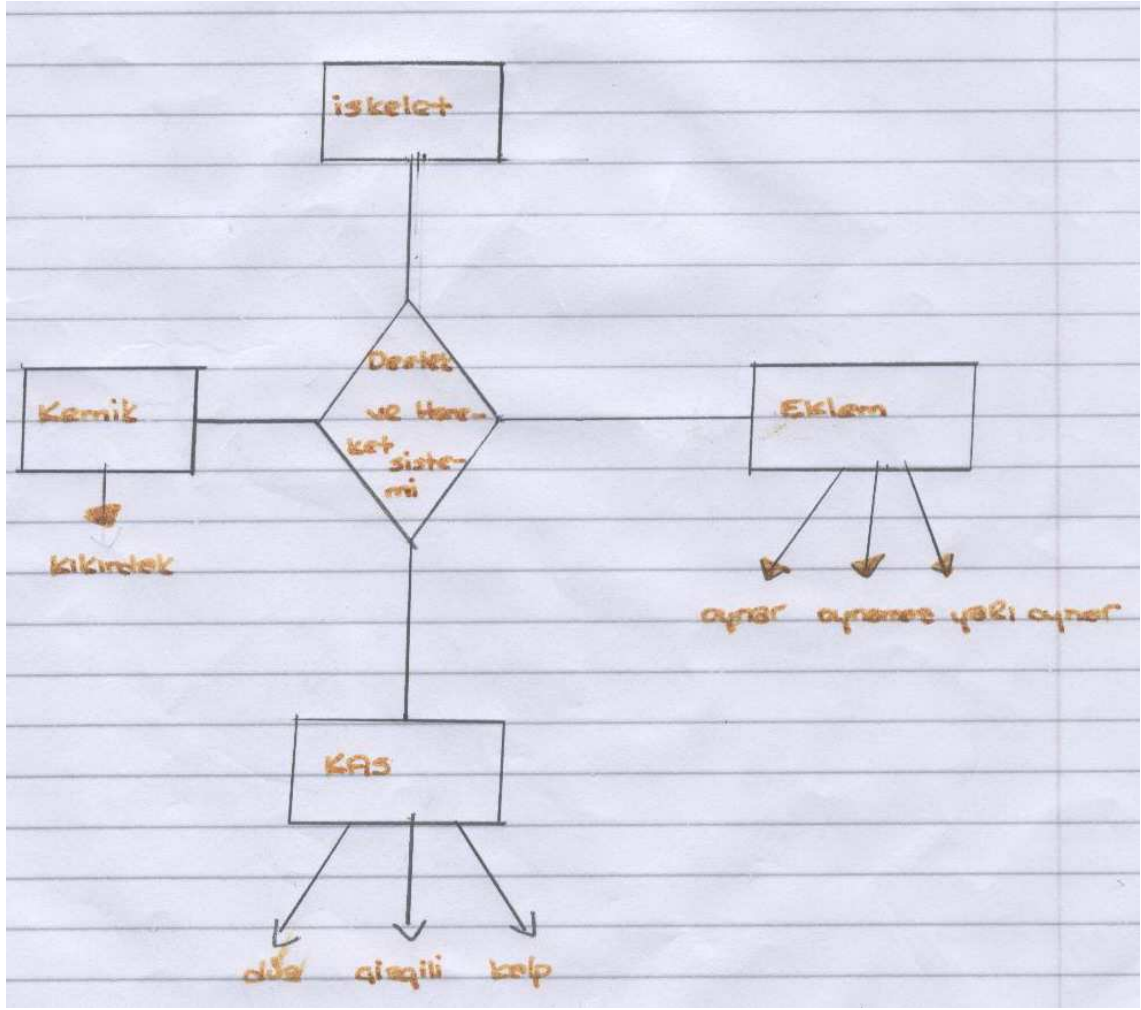 iskelet
Destek
ve Hare-
ket siste-
mi
Kemik
Eklem
kıkırdak
oynar oynamaz yarı oynar
KAS
düz çizgili kalp